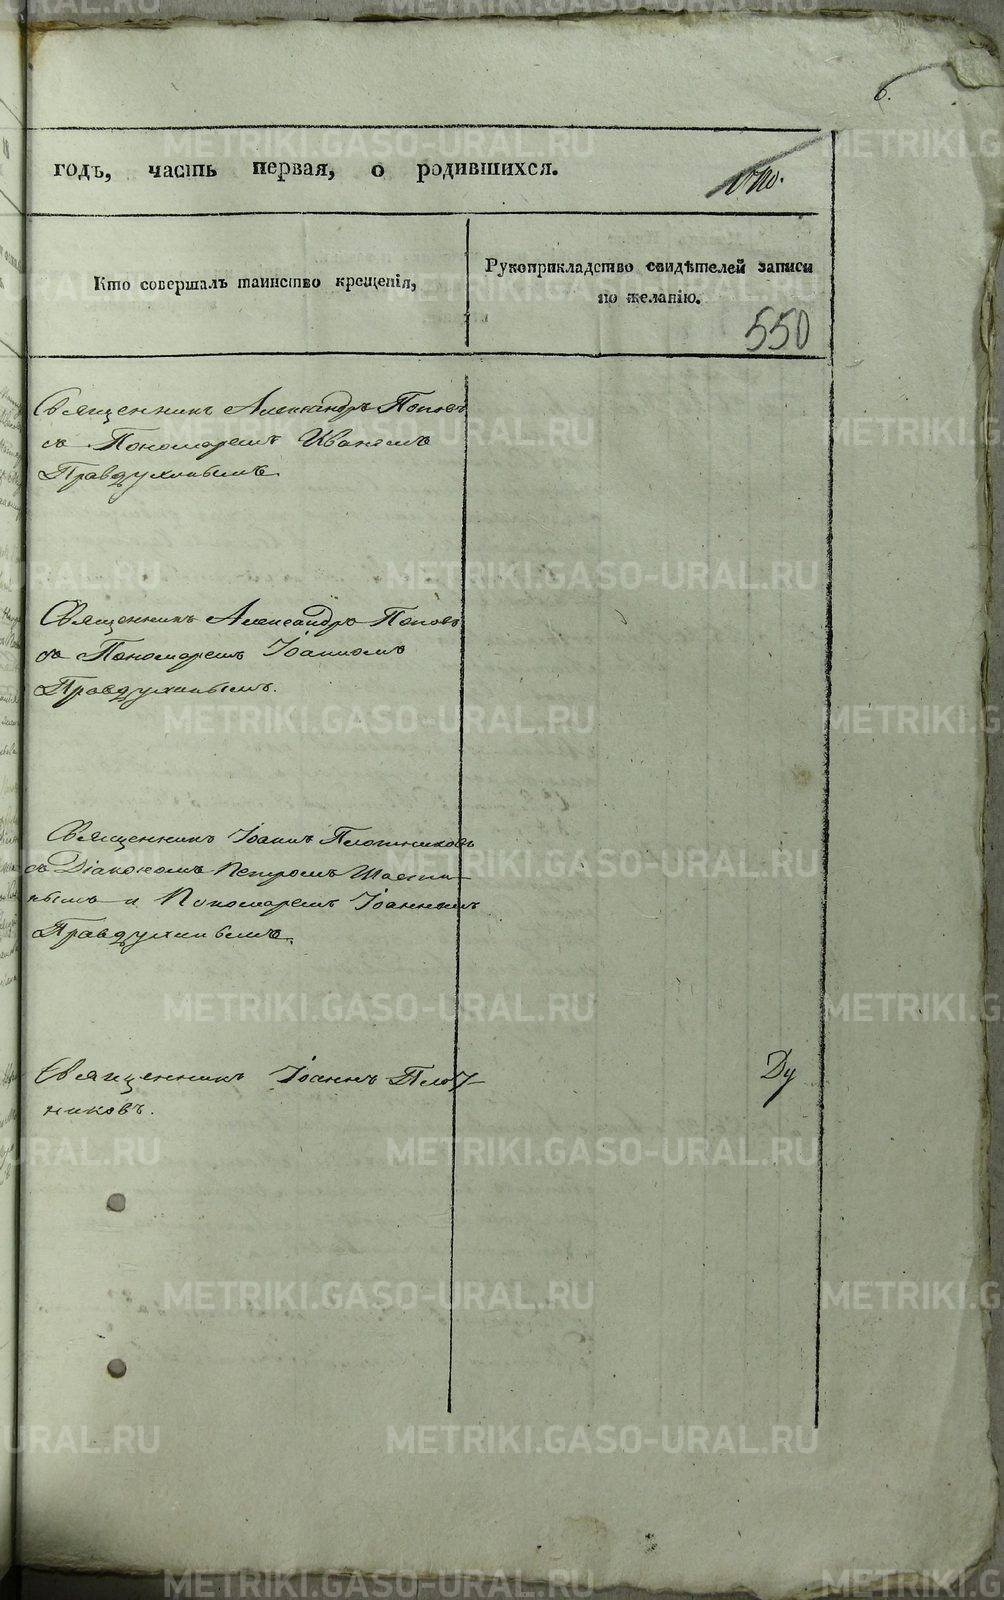 6.
годъ, часть первая, о родившихся.
Кто совершалъ таинство крещенія,
Рукоприкладство свидѣтелей записи
по желанію.
550
Священникъ Александръ Поповъ
съ Пономаремъ Иваномъ
Правдухинымъ
Священникъ Александръ Поповъ
съ Пономаремъ Іоанномъ
Правдухинымъ.
Священникъ Іоаннъ Плотниковъ
съ Діакономъ Петромъ
нымъ и Пономаремъ Іоанномъ
Правдухинымъ.
Священникъ Іоаннъ Плот-
никовъ.
Ду
METRIKI.GASO-URAL.RU